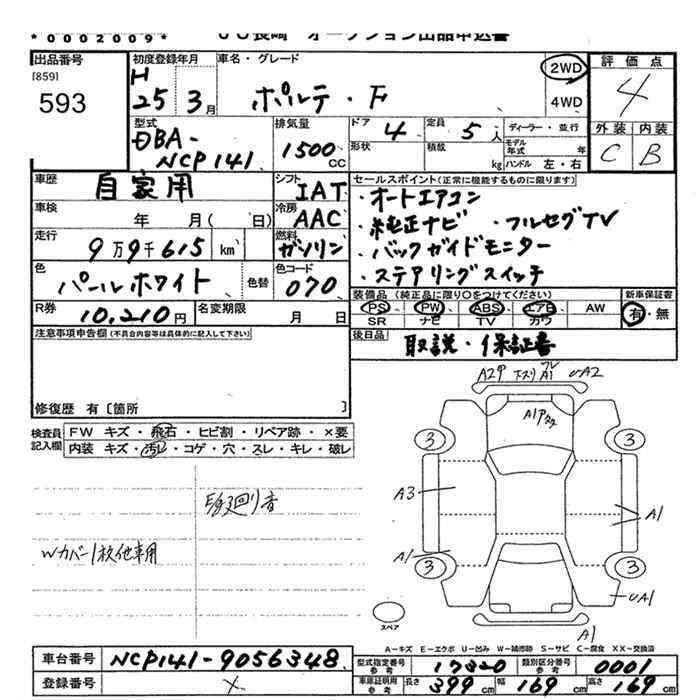 *0002009*
出品番号
[859]
593
初度登録年月
H
25 3月
車名・グレード
ポルテ・F
2WD
4WD
評価点
4
外装 内装
C B
型式
DBA-
NCP141
排気量
1500
CC
ドア 4
定員 5人
ディーラー・並行
形状
積載
kg
モデル年式 年
ハンドル 左・右
車歴
自家用
シフト
IAT
車検
年 月( 日)
冷房
AAC
走行
9万9千615 km
燃料
ガソリン
色
パールホワイト
色替
色コード
070
R券
10,210円
名変期限
月 日
セールスポイント(正常に機能するものに限ります)
・オートエアコン
・純正ナビ ・フルセグTV
・バックガイドモニター
・ステアリングスイッチ
装備品 (純正品に限り○をつけてください)
PS PW ABS エアB AW
SR ナビ TV カワ
新車保証書
有・無
後日品
取説・保証書
注意事項申告欄(不具合内容等は具体的に記入して下さい)
修復歴 有〔箇所 〕
検査員記入欄
FW キズ・飛石・ヒビ割・リペア跡・×要
内装 キズ・汚レ・コゲ・穴・スレ・キレ・破レ
Wカバー1枚他車用
A2P 下スリ A1 UA2
A1P
3
3
A3
A1
A1
3
3
UA1
A1
スペア
A-キズ E-エクボ U-凹み W-補修跡 S-サビ C-腐食 XX-交換済
車台番号
NCP141-9056348
登録番号
×
型式指定番号
参考
17320
類別区分番号
参考
0001
車庫証明用
参考
長さ 399cm
幅 169cm
高さ 169cm